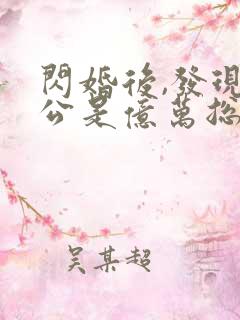 閃婚後,發現
公是億萬總
吴某超